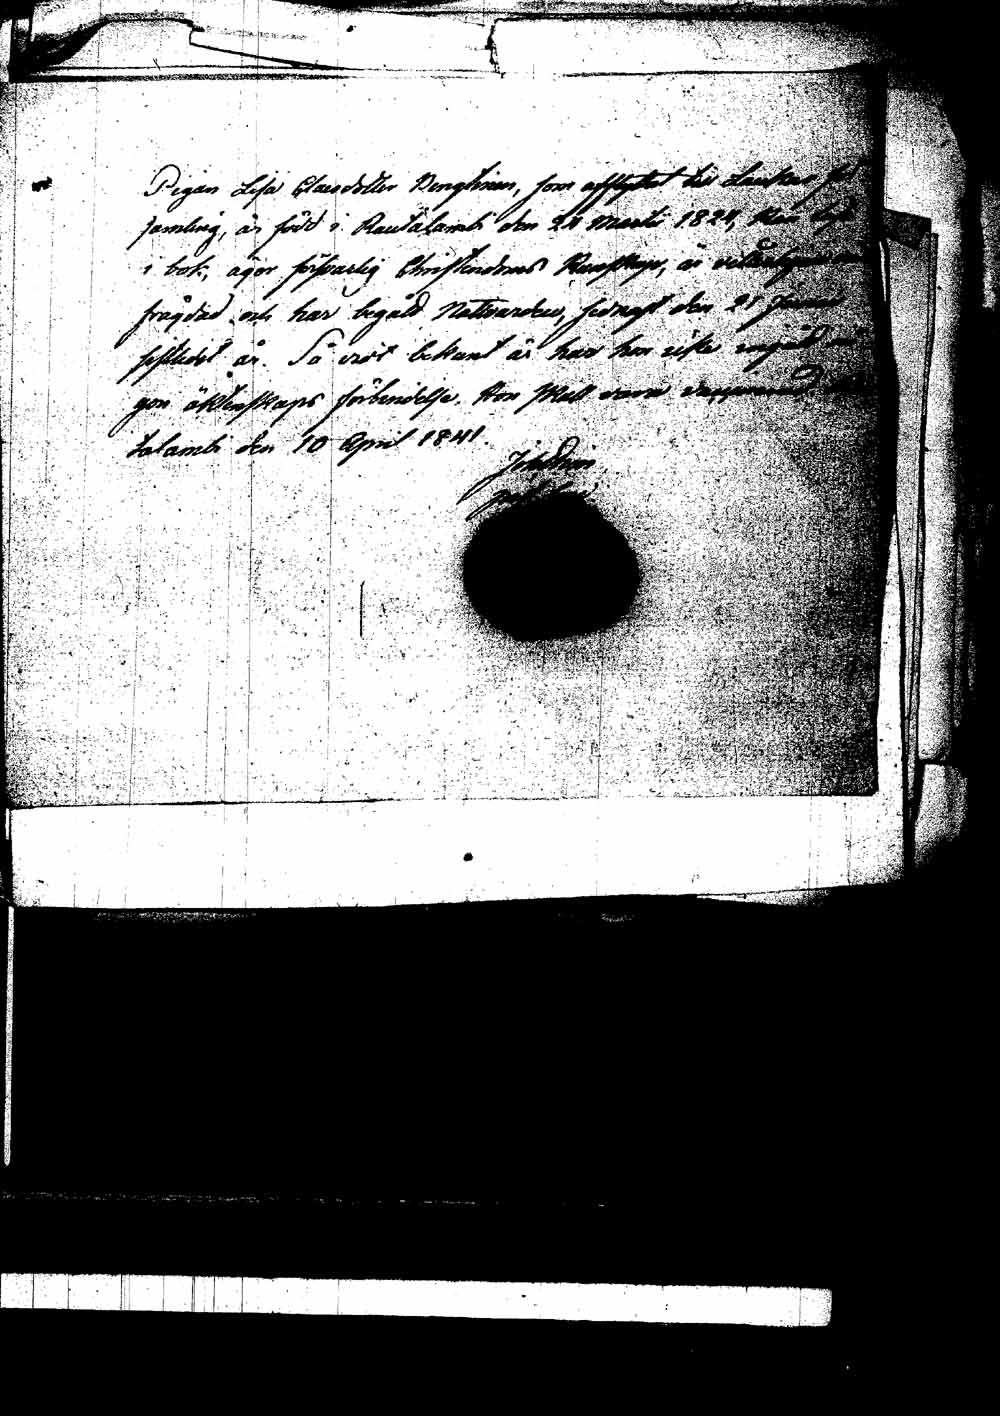 Pigan Lisa Claesdotter Pengtinen, som afflyttat till Laukas
samling, är född i Rautalambi den 24 Martii 1824, Kan
i bok, äger försvarlig Christendoms Kunskap, är
frägdad och har begådt Nattvarden, sednast den 21
sistledit år. Så vidt bekant är har hon icke ingått
gon äktenskaps förbindelse. Hon skall vara vaccinerad.
talambi den 10 April 1841.